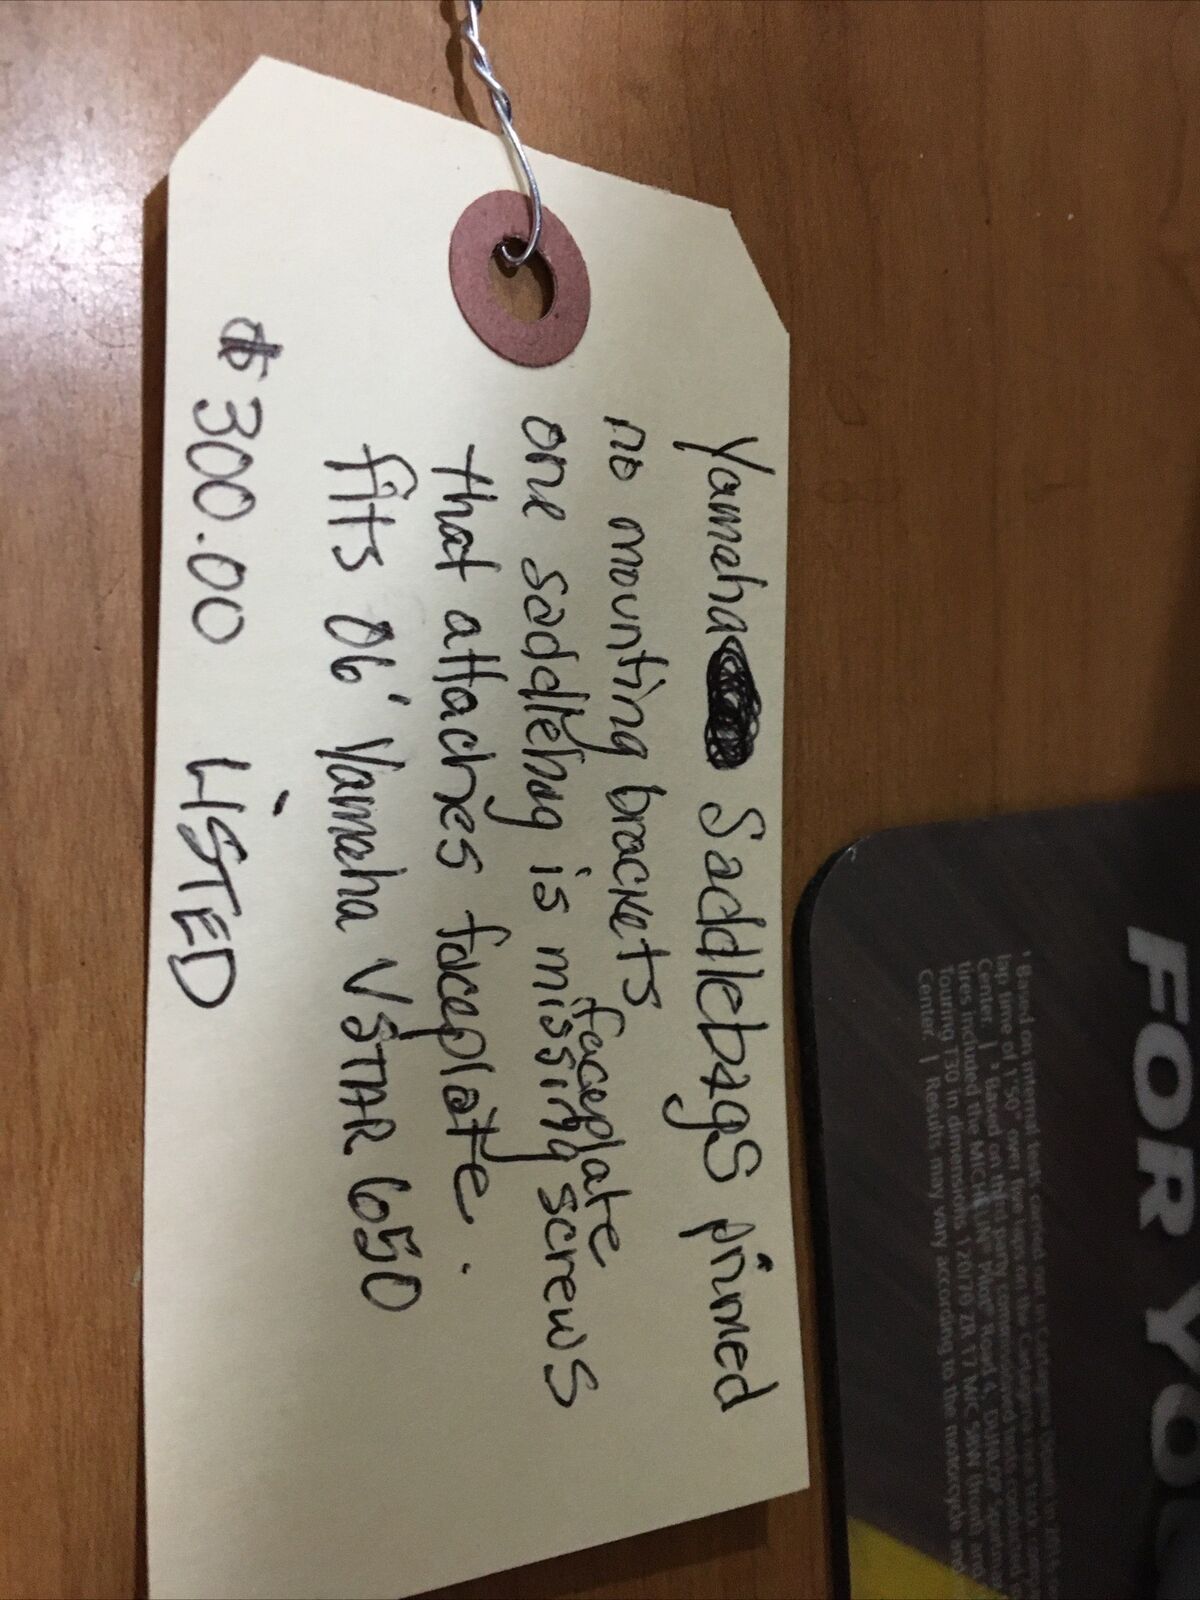 Yamaha Saddlebags primed
no mounting brackets
faceplate
one saddlebag is missing screws
that attaches faceplate.
fits 06' Yamaha VSTAR 650
$300.00 LISTED
FOR YO
¹ Based on internal tests carried out in Cartagena (Spain) in
lap time of 1'50" over five laps on the Cartagena race track
Center. | ² Based on third party commissioned tests conducted
tires included the MICHELIN® Pilot® Road 4, DUNLOP Sportmax
Touring T30 in dimensions 120/70 ZR 17 M/C 58W (front) and
Center. | Results may vary according to the motorcycle and